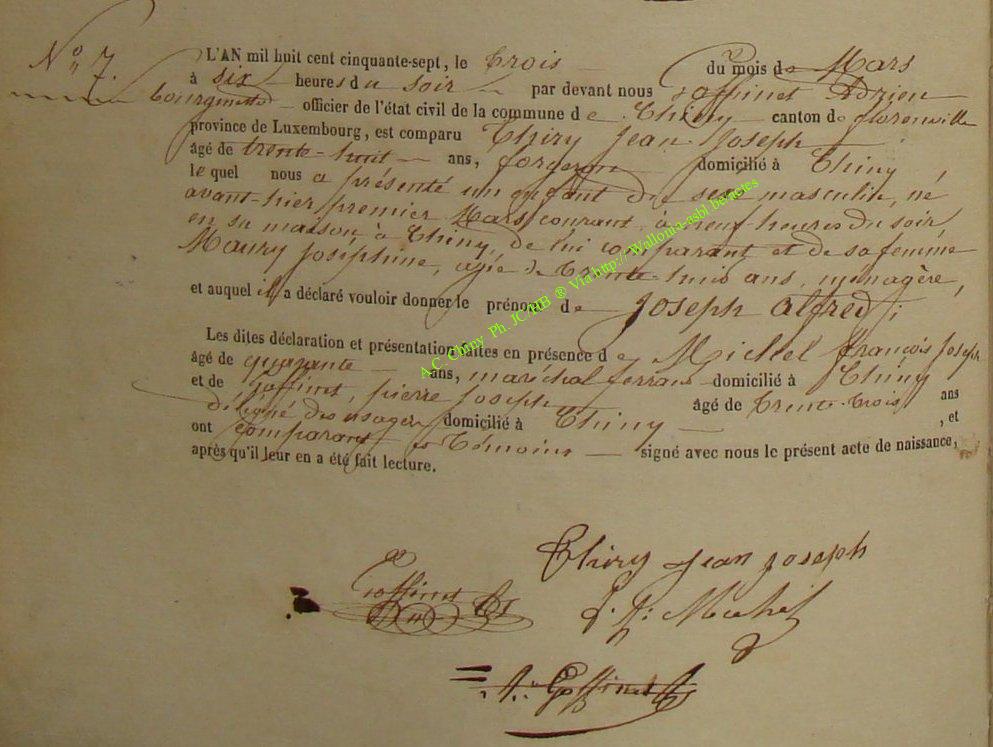 N° 7.
L'AN mil huit cent cinquante-sept, le trois du mois de Mars
à six heures du soir par devant nous Goffinet Adrien
Bourgmestre officier de l'état civil de la commune de Chiny canton de florenville
province de Luxembourg, est comparu Thiry Jean Joseph
âgé de trente-huit ans, forgeron domicilié à Chiny,
le quel nous a présenté un enfant du sexe masculin, né
avant-hier premier Mars courant, à neuf heures du soir
en sa maison à Chiny, de lui comparant et de sa femme
Maury Joséphine, agée de trente-huit ans, ménagère,
et auquel il a déclaré vouloir donner le prénom de Joseph alfred;
Les dites déclaration et présentation faites en présence de Michel françois Joseph
âgé de quarante ans, maréchal ferrant domicilié à Chiny
et de Goffinet, pierre Joseph âgé de trente-trois ans
délégué des usager domicilié à Chiny, et
ont comparant et témoins signé avec nous le présent acte de naissance,
après qu'il leur en a été fait lecture.
A.C. Chiny Ph. JC/MB ® Via http://Wallonia-asbl.be/actes
Thiry Jean Joseph
Goffinet
Michel
Goffinet